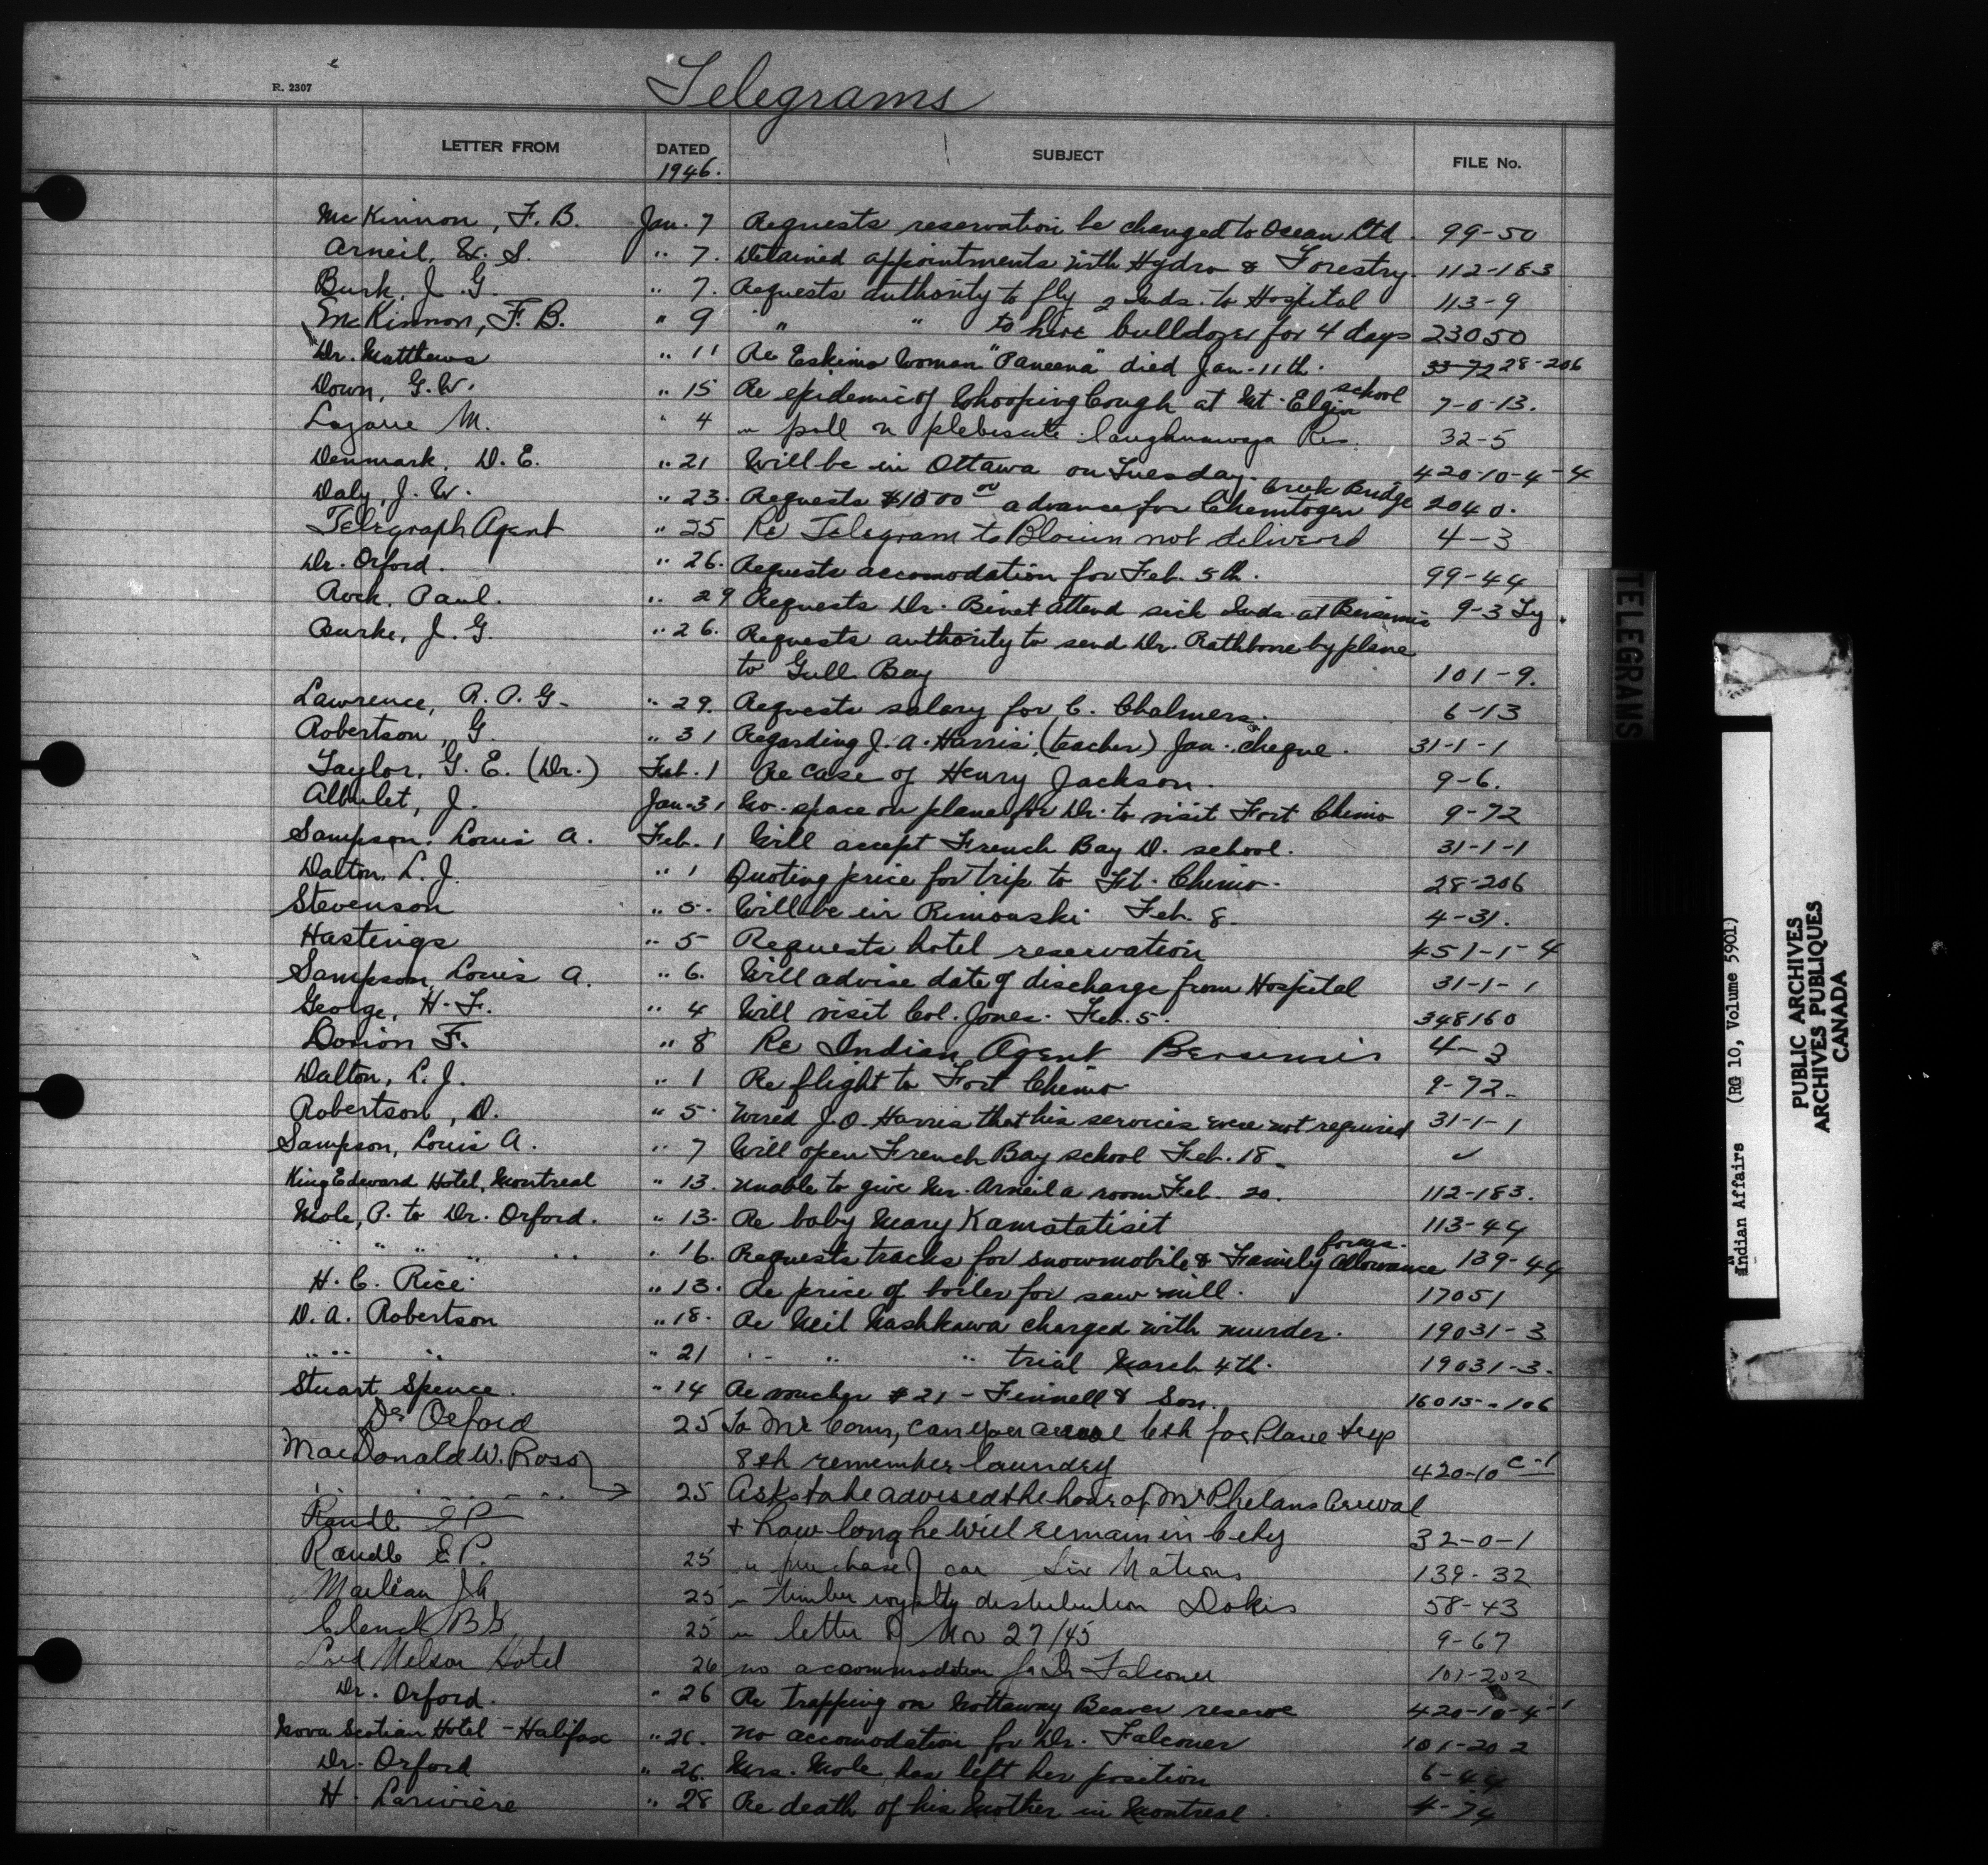 R. 2307
Telegrams
LETTER FROM DATED SUBJECT FILE No.
1946.
McKinnon, F. B. Jan. 7 Requests reservation be changed to Ocean Ltd. 99-50
Arneil, W. S. " 7. Detained appointments with Hydro & Forestry. 112-183
Burk, J. G. " 7. Requests authority to fly 2 Inds. to Hospital 113-9
McKinnon, F. B. " 9 " " to hire bulldozer for 4 days 23050
Dr. Matthews " 11 Re Eskimo Woman "Paneena" died Jan. 11th. 33-72 28-206
Down, G. W. " 15 Re epidemic of Whooping Cough at Mt. Elgin school 7-0-13.
Lazare M. " 4 " poll re plebescite Caughnawaga Res. 32-5
Denmark, D. E. " 21 Will be in Ottawa on Tuesday. 420-10-4-4
Daly, J. W. " 23. Requests $1500 00 advance for Chemtogen Creek Bridge 2040.
Telegraph Agent " 25 Re Telegram to Blouin not delivered 4-3
Dr. Orford. " 26. Requests accomodation for Feb. 5th. 99-44
Rock, Paul. " 29 Requests Dr. Binet attend sick Inds. at Bersimis 9-3 Ty.
Burke, J. G. " 26. Requests authority to send Dr. Rathbone by plane
to Gull Bay 101-9.
Lawrence, R. A. G. " 29. Requests salary for C. Chalmers. 6-13
Robertson, G. " 31 Regarding J. A. Harris' (teacher) Jan. cheque. 31-1-1
Taylor, G. E. (Dr.) Feb. 1 Re case of Henry Jackson. 9-6.
J. Jan. 31 No. space on plane for Dr. to visit Fort Chimo 9-72
Sampson, Louis A. Feb. 1 Will accept French Bay D. school. 31-1-1
Dalton, L. J. " 1 Quoting price for trip to Ft. Chimo. 28-206
Stevenson " 5. Will be in Rimouski Feb. 8. 4-31.
Hastings " 5 Requests hotel reservation 451-1-4
Sampson, Louis A. " 6. Will advise date of discharge from Hospital 31-1-1
George, H. F. " 4 Will visit Col. Jones. Feb. 5. 348160
Dorion F. " 8 Re Indian Agent Bersimis 4-3
Dalton, L. J. " 1 Re flight to Fort Chimo 9-72.
Robertson, D. " 5. Wired J. O. Harris that his services were not required 31-1-1
Sampson, Louis A. " 7 Will open French Bay school Feb. 18. ✓
King Edward Hotel, Montreal " 13. Unable to give Mr. Arneil a room Feb. 20. 112-183.
Mole, P. to Dr. Orford. " 13. Re baby Mary Kamatatisit 113-44
" " " " " " 16. Requests tracks for snowmobile & Family Allowance forms. 139-44
H. C. Rice. " 13. Re price of boiler for saw mill. 17051
D. A. Robertson " 18. Re Neil Nashkawa charged with murder. 19031-3
" " " " 21 " " " trial March 4th. 19031-3.
Stuart Spence. " 14 Re voucher #21 - Fennell & Son. 16015-106
Dr Orford 25 To Mr Conn, can you 6th for Plane trip
MacDonald W. Ross 8th remember laundry 420-10 C-1
" " " 25 Asks to be advised the hour of Mr Phelans Arrival
Randle E P + how long he Will remain in City 32-0-1
Randle E. P. 25 " purchase of car Six Nations 139-32
Marleau J A 25 " timber royalty distribution Dokis 58-43
Clench B G 25 " letter of Nov 27/45 9-67
Lord Nelson Hotel 26 no accommodation for Dr Falconer 101-202
Dr. Orford. " 26 Re trapping on Nottaway Beaver reserve 420-10-4-1
Nova Scotian Hotel - Halifax " 26. No accomodation for Dr. Falconer 101-202
Dr. Orford " 26. Mrs. Mole has left her position 6-44
H. Lariviere " 28 Re death of his Mother in Montreal. 4-74
TELEGRANS
Indian Affairs (RG 10, Volume 5901)
PUBLIC ARCHIVES
ARCHIVES PUBLIQUES
CANADA